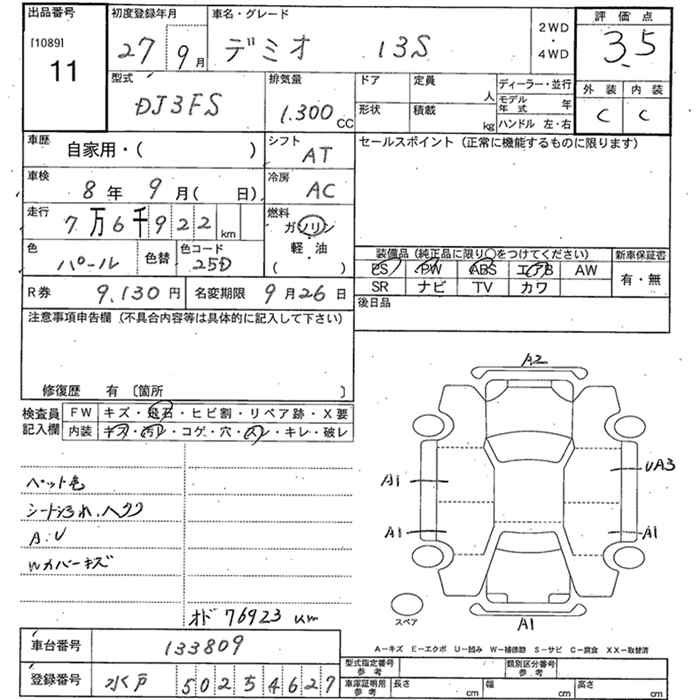 出品番号
[1089]
11
初度登録年月
27 9月
車名・グレード
デミオ 13S
2WD
・
4WD
評価点
3.5
外装 内装
C C
型式
DJ3FS
排気量
1.300 CC
ドア 定員 人
形状 積載 kg
ディーラー・並行
モデル年式 年
ハンドル 左・右
車歴
自家用・( )
シフト
AT
車検
8年 9月( 日)
冷房
AC
走行
7万6千922 km
燃料
ガソリン
・
軽・油
( )
色
パール
色替
色コード
25D
R券 9,130円
名変期限 9月26日
セールスポイント (正常に機能するものに限ります)
装備品 (純正品に限り○をつけてください)
PS PW ABS エアB AW
SR ナビ TV カワ
新車保証書
有・無
後日品
注意事項申告欄 (不具合内容等は具体的に記入して下さい)
修復歴 有 〔箇所 〕
検査員記入欄
FW キズ・飛石・ヒビ割・リペア跡・X要
内装 キズ・汚レ・コゲ・穴・スレ・キレ・破レ
ペット毛
A.U
Wカバーキズ
オド 76923 km
A2
A1
UA3
A1
A1
A1
スペア
A-キズ E-エクボ U-凹み W-補修跡 S-サビ C-腐食 XX-取替済
車台番号 133809
登録番号 水戸 502 54627
型式指定番号 参考
類別区分番号 参考
車庫証明用 参考
長さ cm 幅 cm 高さ cm